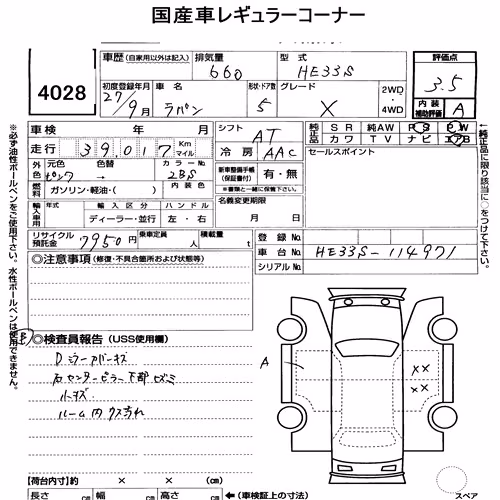 国産車レギュラーコーナー
4028
車歴 (自家用以外は記入) 排気量 型式
660 HE33S
評価点
3.5
内装
補助評価 A
初度登録年月 車名 形状・ドア数 グレード
27/9月 ラパン 5 X 2WD・4WD
車検 年 月 シフト AT
純正品 SR 純AW PS PW
純正品 カワ TV ナビ エアB
走行 39,017 Km マイル
冷房 AAC
セールスポイント
外色 元色 色替 カラーNo.
ピンク → ZBS
燃料 ガソリン・軽油・( ) 内装色
新車整備手帳(保証書付) 有・無
※書類と一緒に保管下さい。
輸入車用 年式 輸入区分 ハンドル
ディーラー・並行 左・右
名義変更期限
月 日
リサイクル預託金 7950円 乗車定員 人 積載量 t
登録No.
車台No. HE33S-114971
シリアルNo.
◎注意事項 (修復・不具合箇所および状態等)
◎検査員報告 (USS使用欄)
Dミラーアバーキズ
右センターピラー下部ヒズミ
ルーム内クスミ汚れ
A
×× ××
【荷台内寸】約 × × (cm)
長さ cm 幅 cm 高さ cm
←(車検証上の寸法)
スペア
※必ず油性ボールペンをご使用下さい。水性ボールペンは使用できません。
←純正品に限り該当に○をつけて下さい。